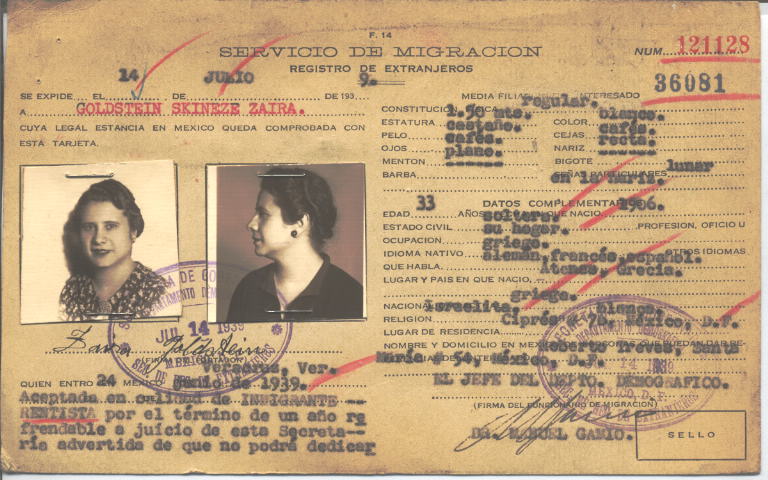 F. 14
SERVICIO DE MIGRACION
REGISTRO DE EXTRANJEROS
NUM. 121128
36081
SE EXPIDE EL 14 DE JULIO DE 193 9.
A GOLDSTEIN SKINEZE ZAIRA.
CUYA LEGAL ESTANCIA EN MEXICO QUEDA COMPROBADA CON
ESTA TARJETA.
Zaira Goldstein
JUL 14 1939
(FIRMA DEL PORTADOR)
Veracruz, Ver.
QUIEN ENTRO 24 Junio de 1939.
Aceptada en calidad de INMIGRANTE
RENTISTA por el término de un año re
frendable a juicio de esta Secreta--
ría advertida de que no podrá dedicar
MEDIA FILIACION INTERESADO
CONSTITUCION FISICA regular.
ESTATURA 1.50 mts. COLOR blanco.
PELO castaño. CEJAS cafés.
OJOS cafés. NARIZ recta.
MENTON plano. BIGOTE ------
BARBA ------ SEÑAS PARTICULARES lunar
en la nariz.
DATOS COMPLEMENTARIOS
EDAD 33 AÑOS EN QUE NACIO 1906.
ESTADO CIVIL soltera. PROFESION, OFICIO U
OCUPACION su hogar.
IDIOMA NATIVO griego. OTROS IDIOMAS
QUE HABLA. alemán, francés, español.
LUGAR Y PAIS EN QUE NACIO, Atenas, Grecia.
NACIONALIDAD griega.
RELIGION israelita. blanca.
LUGAR DE RESIDENCIA Ciprés # 70. México, D.F.
NOMBRE Y DOMICILIO EN MEXICO PERSONAS QUE PUEDAN DAR RE-
Roberto Treves, Santa
María 54, México, D.F.
14 1939
EL JEFE DEL DEPTO. DEMOGRAFICO.
(FIRMA DEL FUNCIONARIO DE MIGRACION)
DR. MANUEL GAMIO.
SELLO